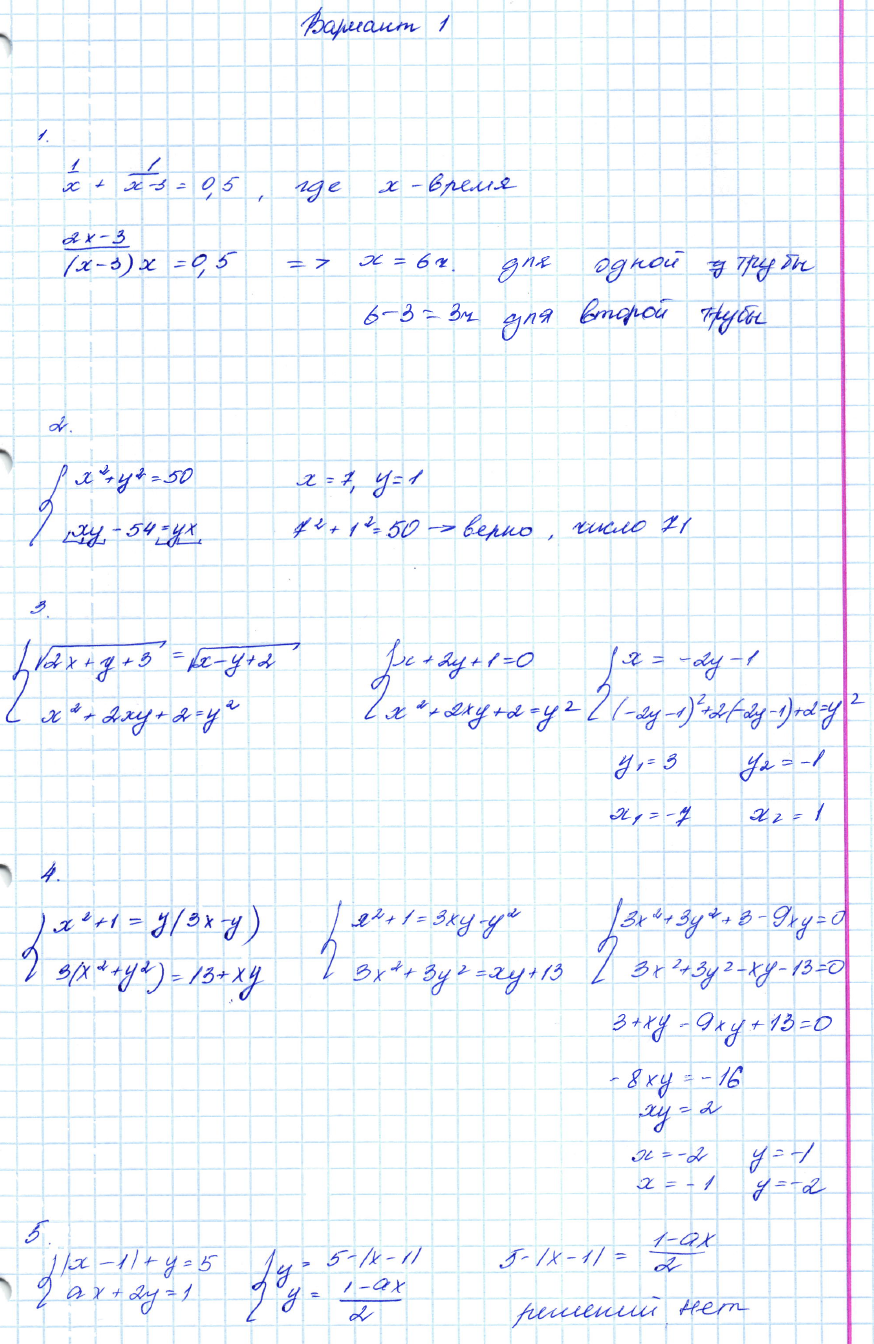 Вариант 1
1.
1/x + 1/(x-3) = 0,5 , где x - время
(2x-3)/((x-3)x) = 0,5 => x = 6ч. для одной трубы
6-3 = 3ч для второй трубы
2.
{ x²+y²=50 x=7, y=1
{ xy - 54 = yx 7²+1²=50 → верно, число 71
3.
{ √(2x+y+3) = √(x-y+2) { x+2y+1=0 { x = -2y-1
{ x²+2xy+2=y² { x²+2xy+2=y² { (-2y-1)²+2(-2y-1)+2=y²
y₁=3 y₂=-1
x₁=-7 x₂=1
4.
{ x²+1 = y(3x-y) { x²+1=3xy-y² { 3x²+3y²+3-9xy=0
{ 3(x²+y²)=13+xy { 3x²+3y²=xy+13 { 3x²+3y²-xy-13=0
3+xy-9xy+13=0
-8xy=-16
xy=2
x=-2 y=-1
x=-1 y=-2
5.
{ |x-1|+y=5 { y = 5-|x-1| 5-|x-1| = (1-ax)/2
{ ax+2y=1 { y = (1-ax)/2
решений нет